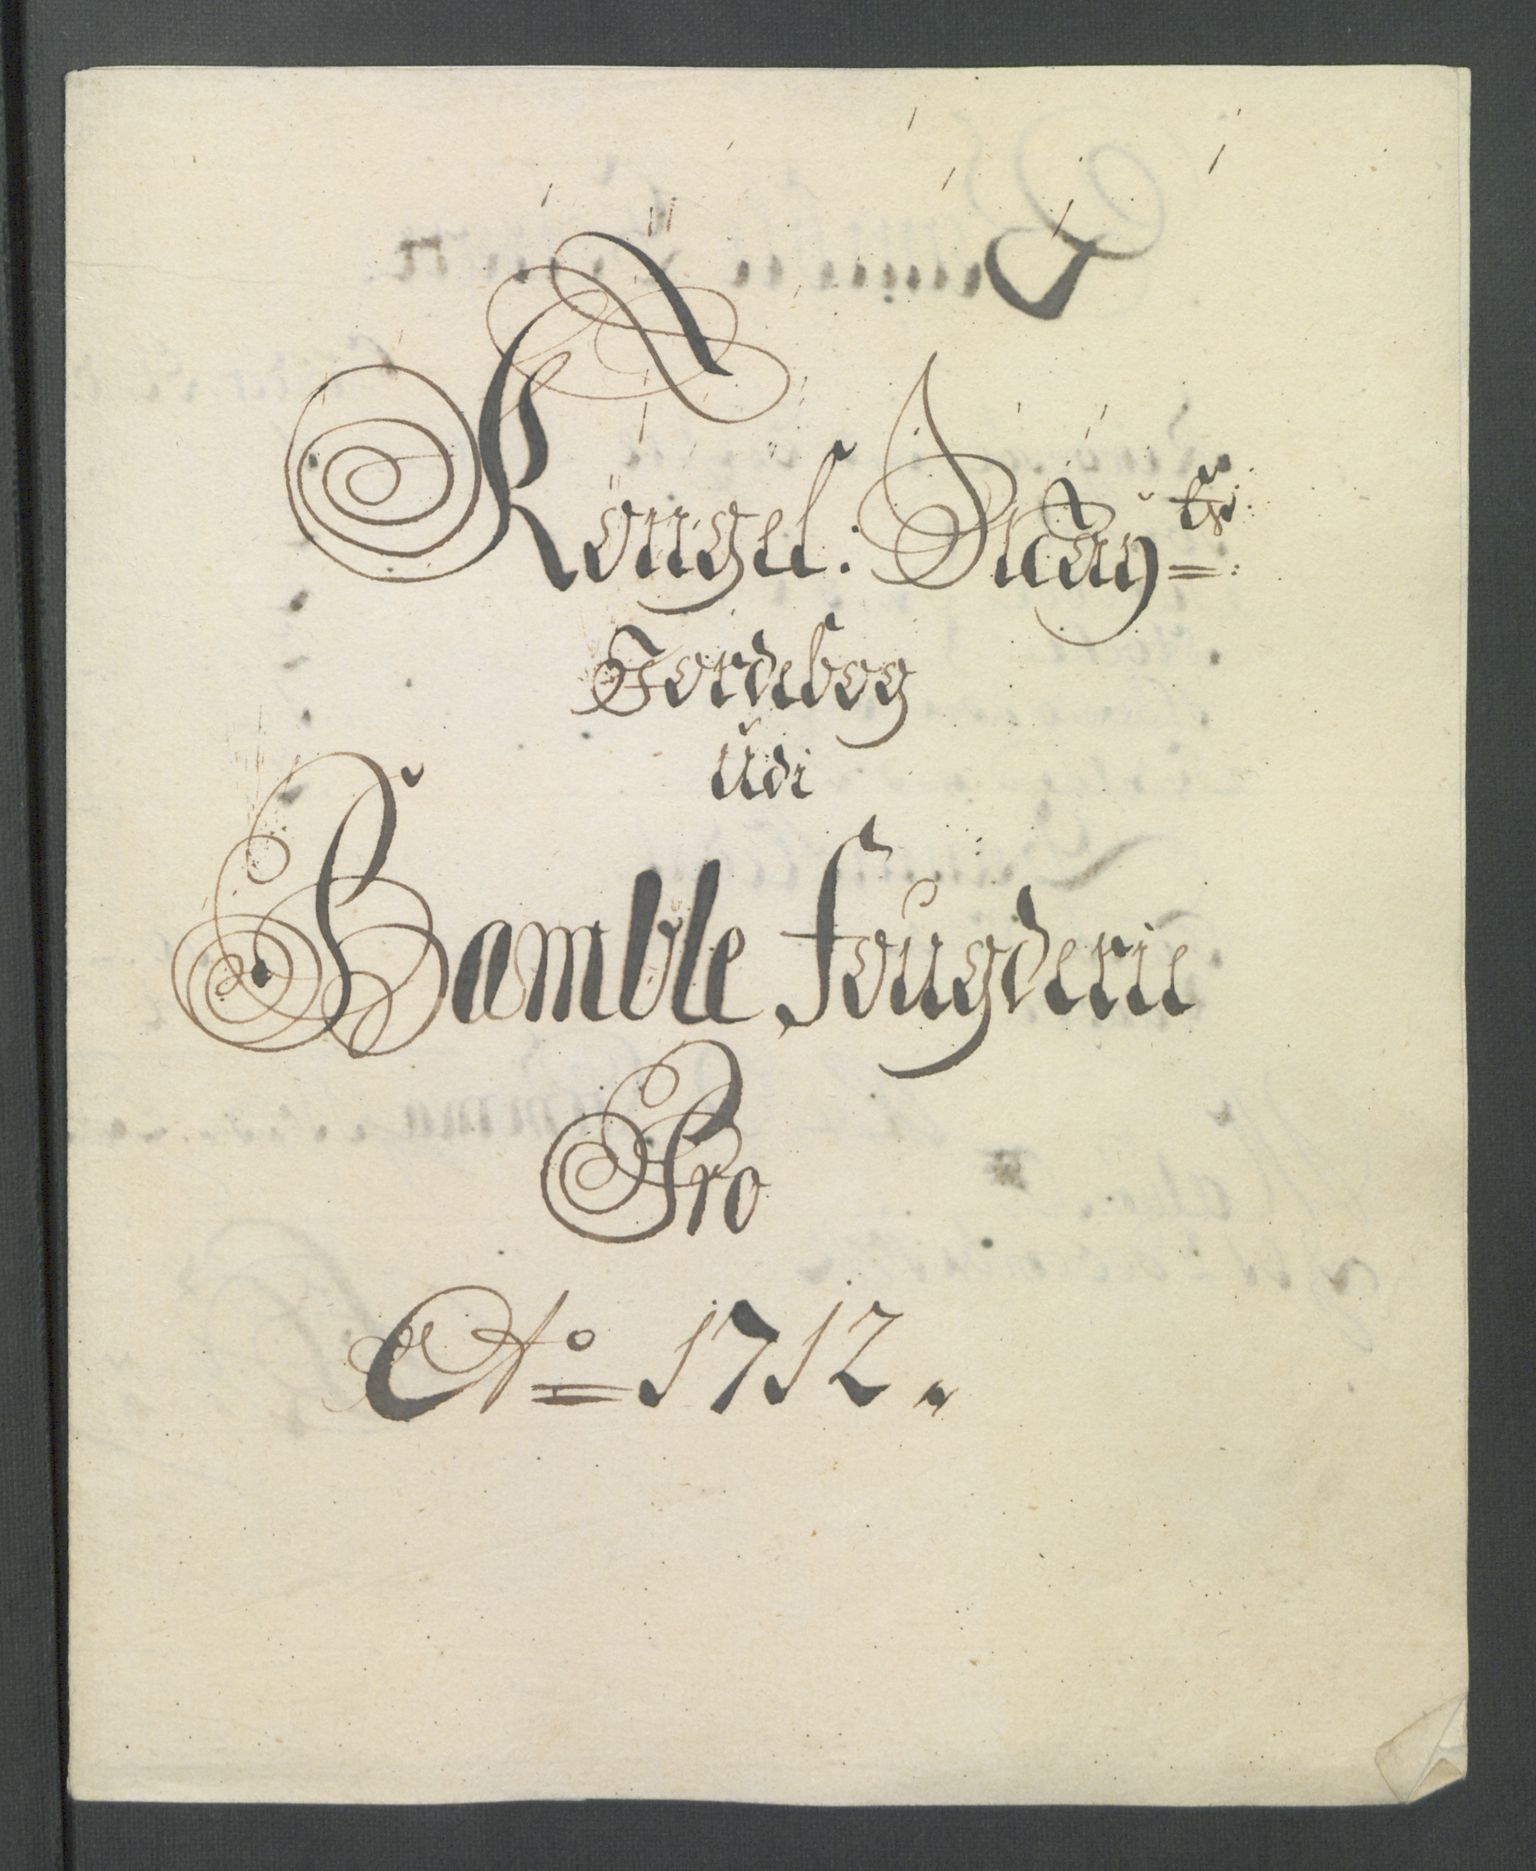 Kongel. Maÿ=ts:
Jordebog
Udi
Bamble fougderie
Pro
Ao= 1712.